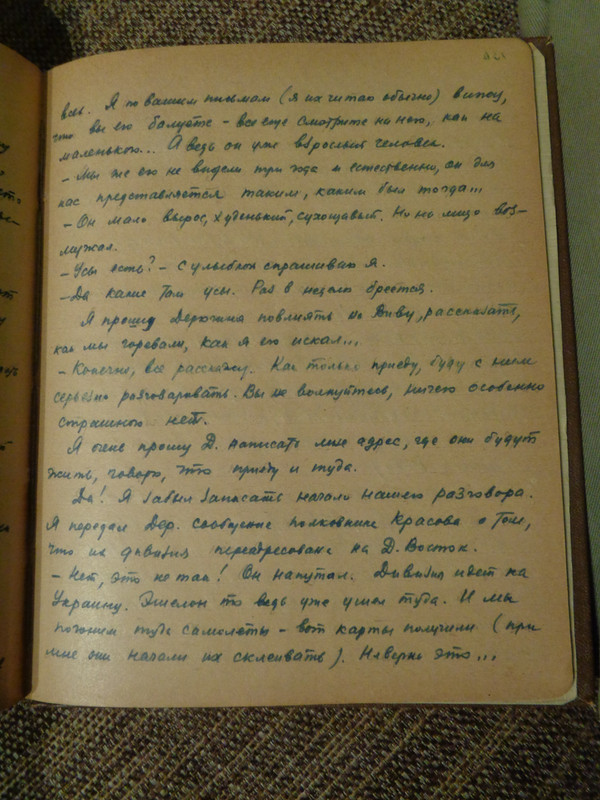 весь. Я по вашим письмам (я их читаю обычно) вижу,
что вы его балуете - все еще смотрите на него, как на
маленького... А ведь он уже взрослый человек.
- Мы же его не видели три года и естественно, он для
нас представляется таким, каким был тогда...
- Он мало вырос, худенький, сухощавый. Но на лицо воз-
мужал.
- Усы есть? - с улыбкой спрашиваю я.
- Да какие там усы. Раз в неделю бреется.
Я прошу Дерюжина повлиять на Виву, рассказать,
как мы горевали, как я его искал...
- Конечно, все расскажу. Как только приеду, буду с ним
серьезно разговаривать. Вы не волнуйтесь, ничего особенно
страшного нет.
Я очень прошу Д. написать мне адрес, где они будут
жить, говорю, что приеду и туда.
Да! Я забыл записать начало нашего разговора.
Я передал Дер. сообщение полковника Красова о том,
что их дивизия переадресована на Д. Восток.
- Нет, это не так! Он напутал. Дивизия идет на
Украину. Эшелон то ведь уже ушел туда. И мы
погоним туда самолеты - вот карты получили (при
мне они начали их склеивать). Наверно это...